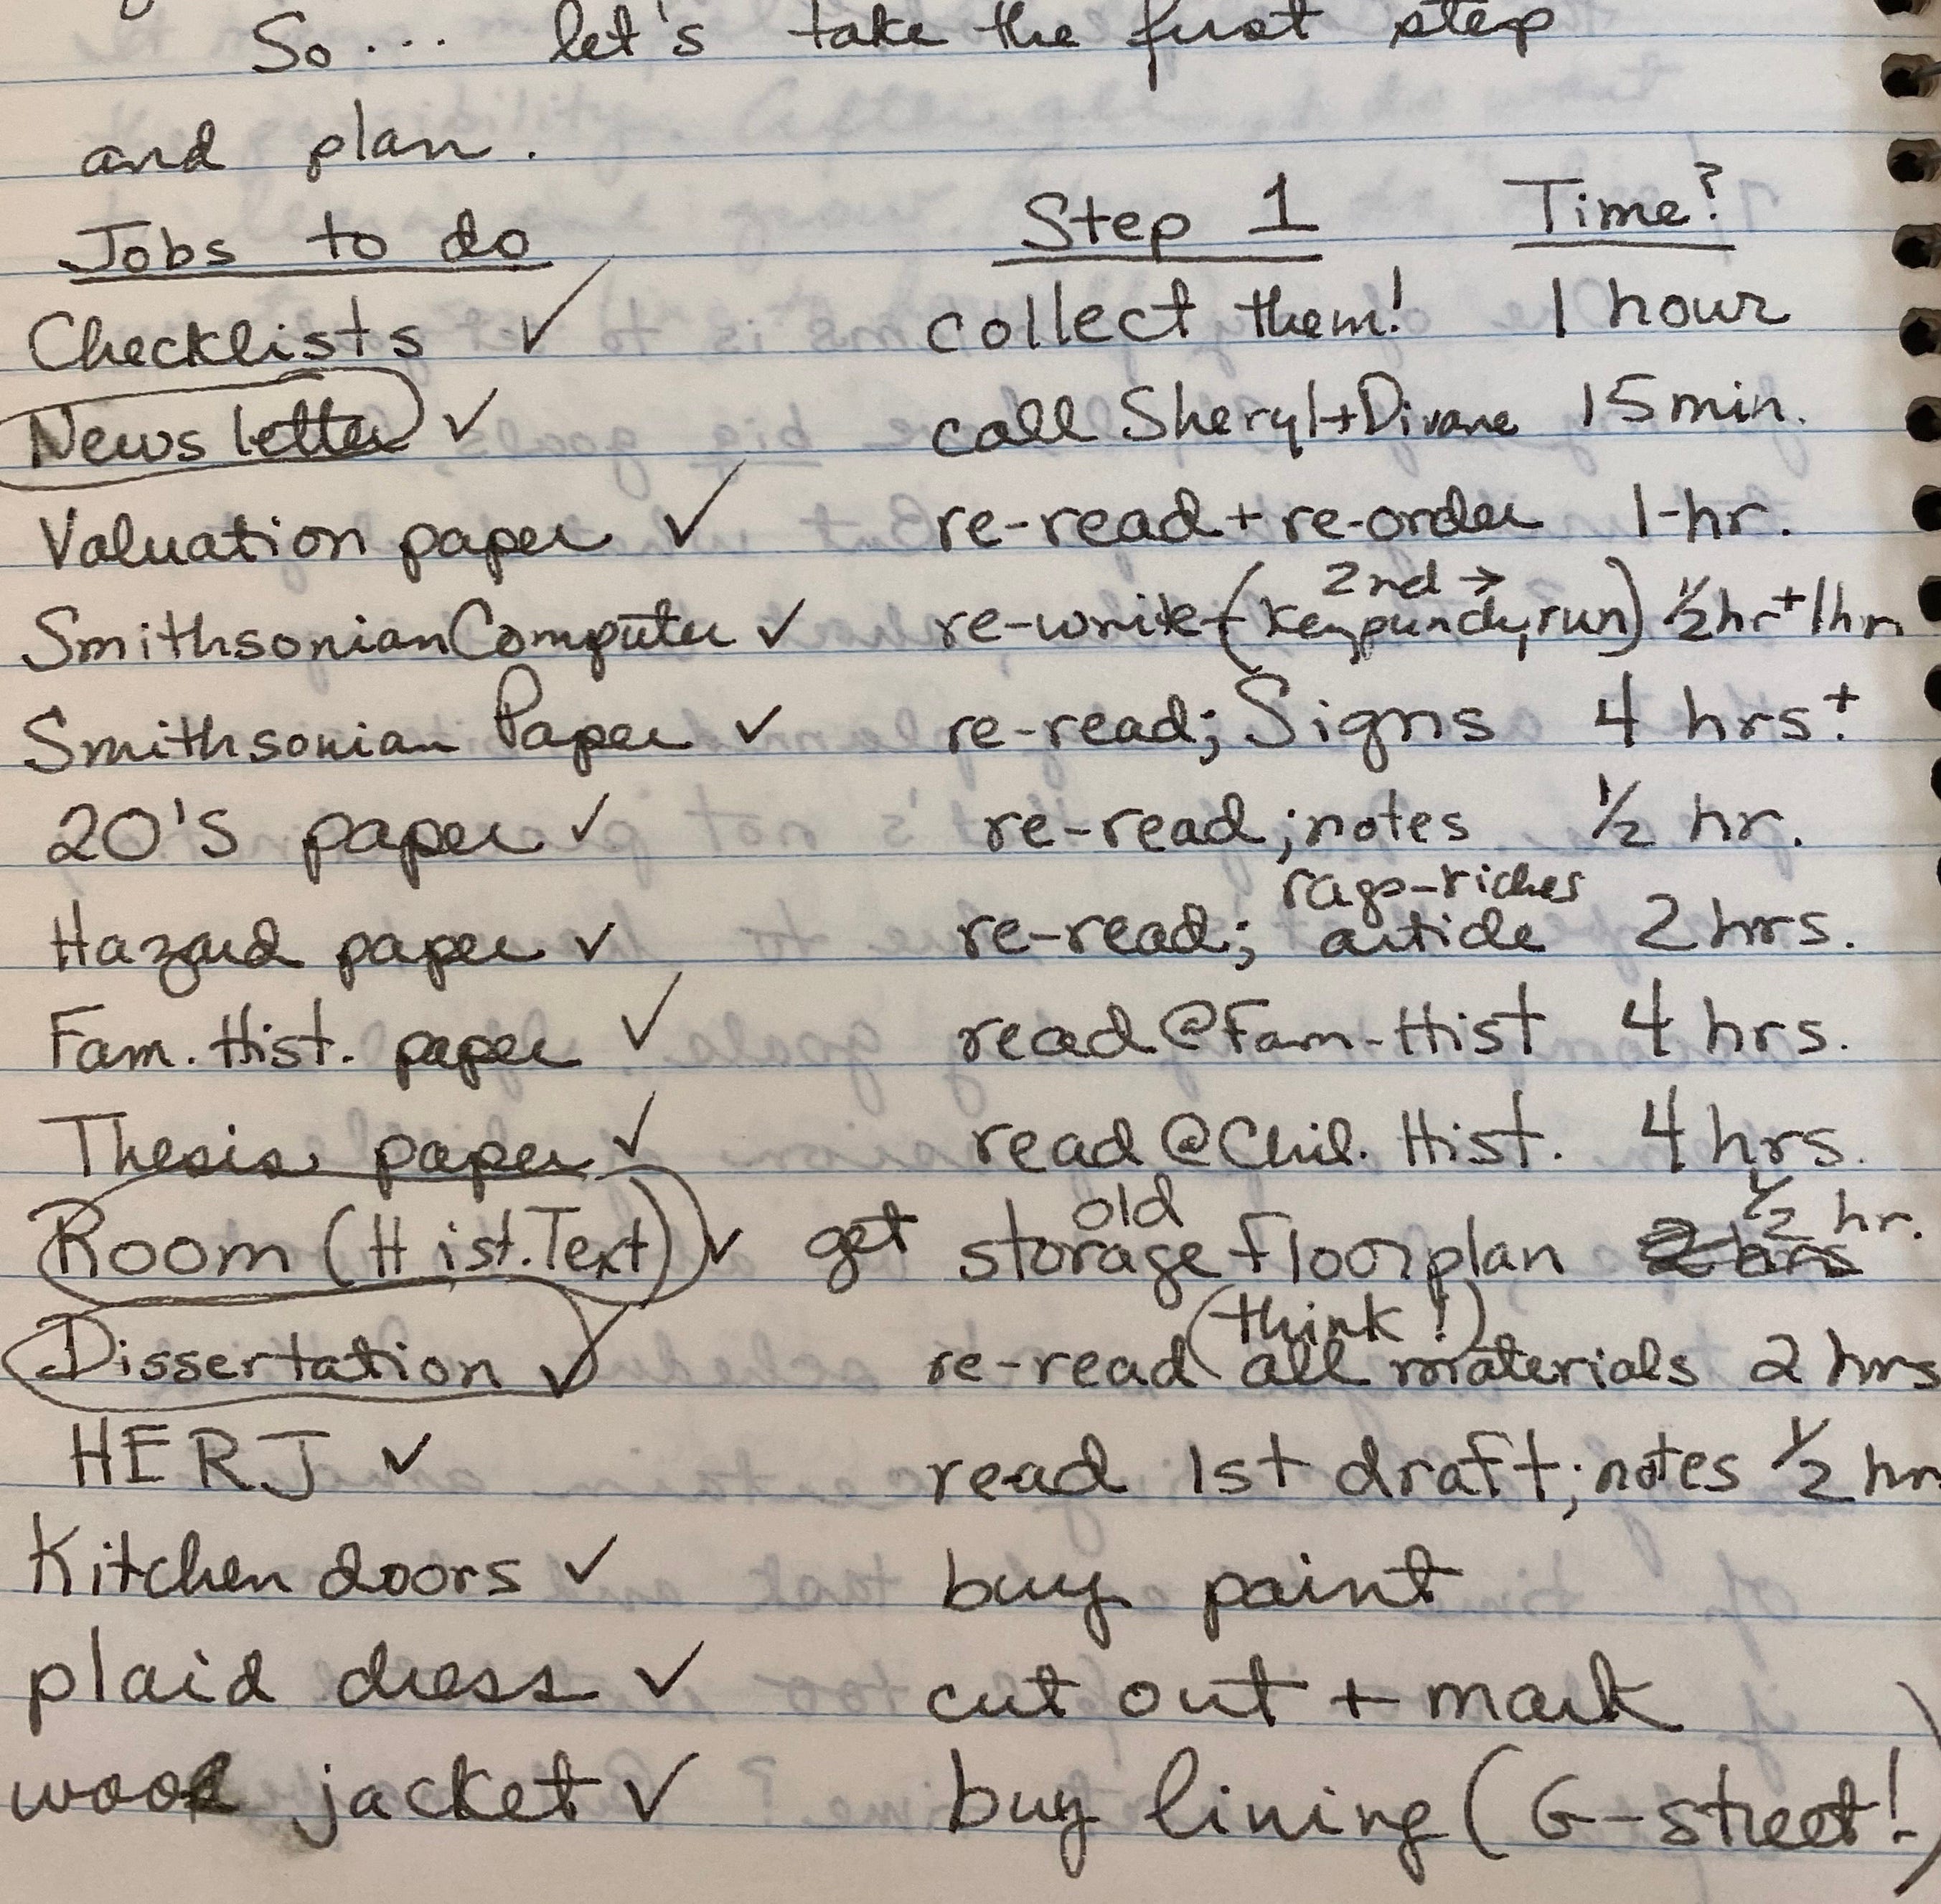 So... let's take the first step
and plan.
Jobs to do Step 1 Time?
Checklists ✓ collect them! 1 hour
Newsletter ✓ call Sheryl + Divane 15 min.
Valuation paper ✓ re-read + re-order 1-hr.
2nd →
Smithsonian Computer ✓ re-write (keypunch, run) ½ hr + 1 hr
Smithsonian Paper ✓ re-read; Signs 4 hrs +
20's paper ✓ re-read; notes ½ hr.
rags-riches
Hazard paper ✓ re-read; article 2 hrs.
Fam. Hist. paper ✓ read @ Fam-Hist 4 hrs.
Thesis paper ✓ read @ Chil. Hist. 4 hrs.
old ½ hr.
Room (Hist. Text) ✓ get storage floorplan 2 hrs
(think!)
Dissertation ✓ re-read all materials 2 hrs
HERJ ✓ read 1st draft; notes ½ hr
Kitchen doors ✓ buy paint
plaid dress ✓ cut out + mark
wool jacket ✓ buy lining (G-street!)